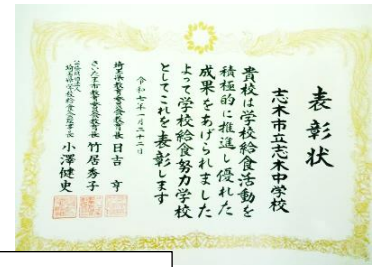 表彰状
志木市立志木中学校
貴校は学校給食活動を
積極的に推進し優れた
成果をあげられました
よって学校給食努力学校
としてこれを表彰します
令和七年一月二十二日
埼玉県教育委員会教育長 日吉 亨
さいたま市教育委員会教育長 竹居秀子
公益財団法人埼玉県学校給食会理事長 小澤健史